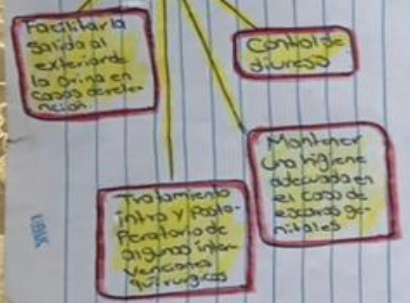 Facilitar la
salida al
exterior de
la orina en
casos de reten
nción
Control de
diuresis
Mantener
una higiene
adecuada en
el caso de
escaras ge-
nitales
Tratamiento
intra y Posto-
Peratorio de
algunas inter-
venciones
quirurgicas